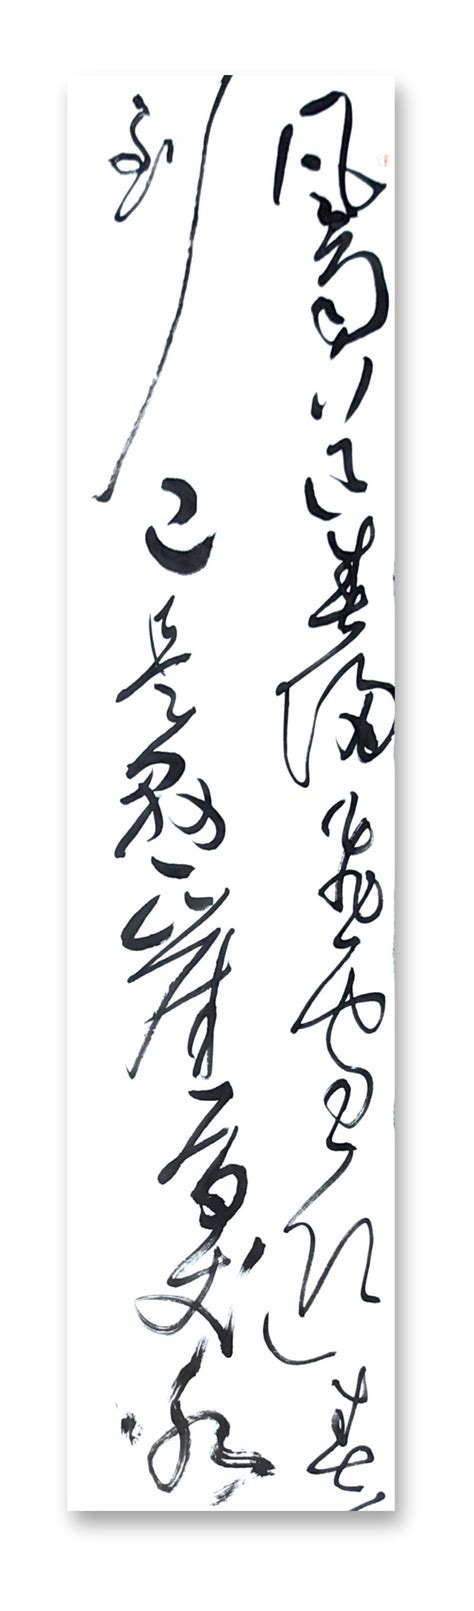 风雨送春归飞雪迎春
到已是悬崖百丈冰